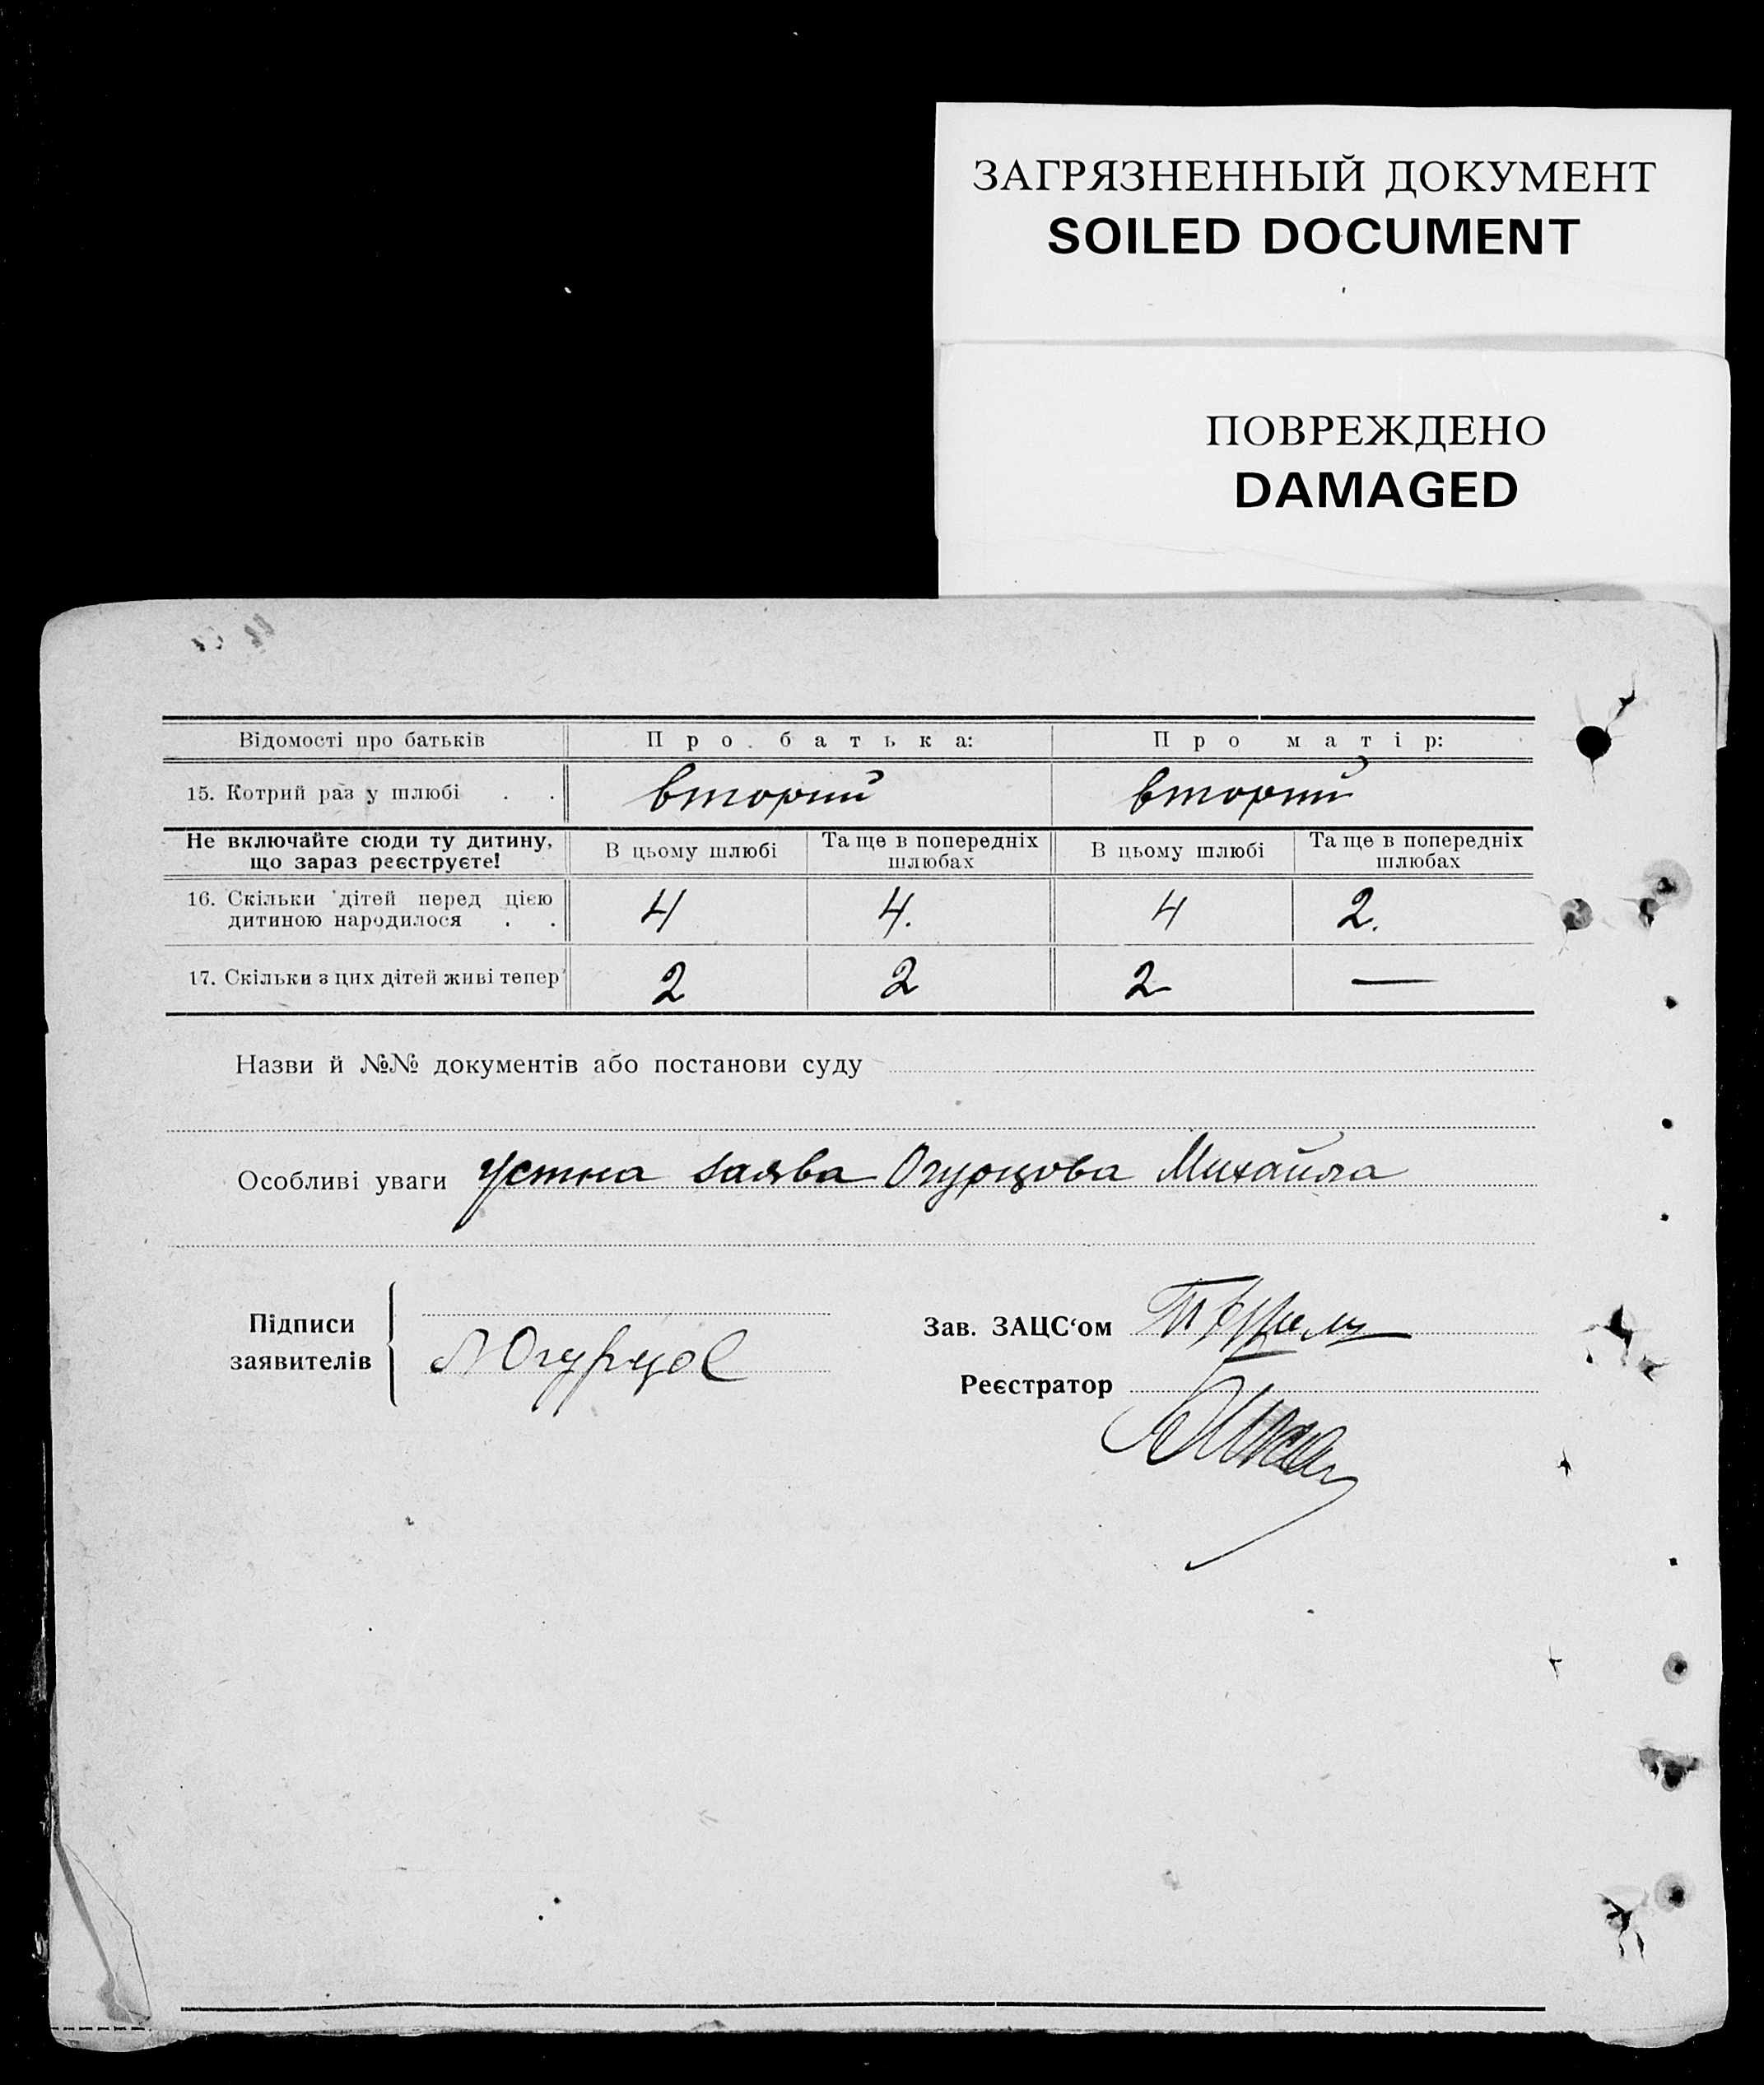 ЗАГРЯЗНЕННЫЙ ДОКУМЕНТ
SOILED DOCUMENT
ПОВРЕЖДЕНО
DAMAGED
Відомості про батьків Про батька: Про матір:
15. Котрий раз у шлюбі . . вторий вторий
Не включайте сюди ту дитину, що зараз реєструєте! В цьому шлюбі Та ще в попередніх шлюбах В цьому шлюбі Та ще в попередніх шлюбах
16. Скільки дітей перед цією дитиною народилося . . 4 4. 4 2.
17. Скільки з цих дітей живі тепер 2 2 2 —
Назви й №№ документів або постанови суду
Особливі уваги Устна заява Огурцова Михайла
Підписи заявителів Огурцов
Зав. ЗАЦС‘ом
Реєстратор